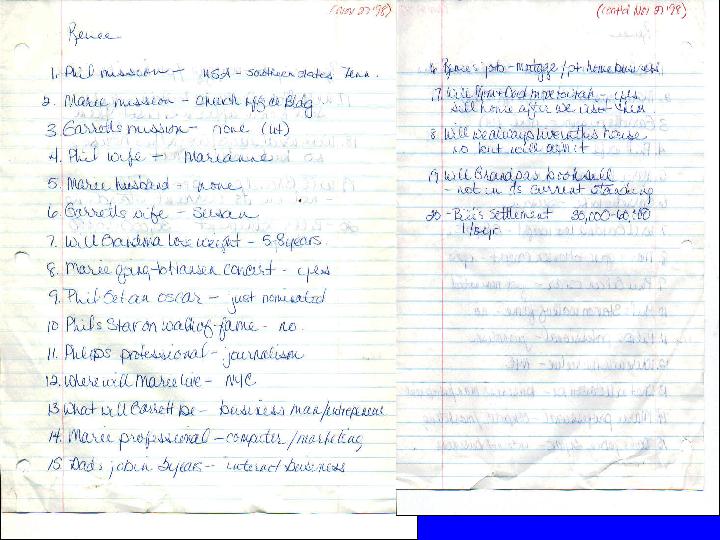 (Nov 27 '98)
Renee
1. Phil mission - USA - Southern States Tenn.
2. Maree mission - Church Office Bldg
3 Garretts mission - none
4. Phil wife - Marianne
5. Maree husband - none
6. Garretts wife - Susan
7. Will Grandma lose weight - 5-8 years.
8. Maree going to Hansen concert - yes
9. Phil Get an oscar - just nominated
10 Phils Star on walk of fame - no.
11. Philps professional - journalism
12. Where will Maree live - NYC
13 What will Garrett be - business man/entrepeneur
14. Maree professional - computer/marketing
15. Dads job in 5 years - internet business
(cont'd Nov 27 '98)
16 Renee's job - mortgage / pt home business
17 Will Mom + Dad move to Utah - yes
sell home after we visit them
18 Will we always live in this house
no but will own it
19 Will Grandpas book sell
- not in its current standing
20 - Settlement
1/2 yr.